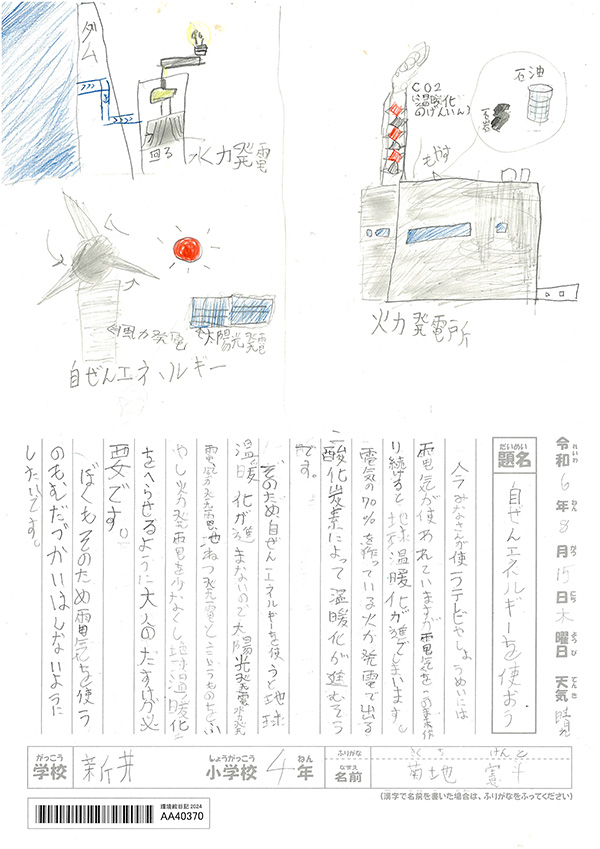 ダム
回る
水力発電
CO2
温暖化
のげんいん
石油
石岩
もやす
風力発電
太陽光発電
自ぜんエネルギー
火力発電所
令和6年8月15日木曜日 天気 晴れ
れいわ ねん がつ にち ようび てんき
だいめい
題名
自ぜんエネルギーを使おう
今みなさんが使うテレビやしょうめいには
電気が使われていますが電気をこの
り続けると地球温暖化が進でしまいます。
電気の70%を作っている火力発電で出る
二酸化炭素によって温暖化が進むそう
です。
そのため自ぜんエネルギーを使うと地球
温暖化が進まないので太陽光発電水力発
電風力発電地ねつ発電というものをふ
やし火力発電を少なくし地球温暖化
をへらせるように大人のたすけが必
要です。
ぼくもそのため電気を使う
のもむだづかいはしないように
したいです。
がっこう
学校
新井
しょうがっこう
小学校
4
ねん
年
ふりがな
なまえ
名前
きくち けんと
菊地
(漢字で名前を書いた場合は、ふりがなをふってください)
環境絵日記 2024
AA40370